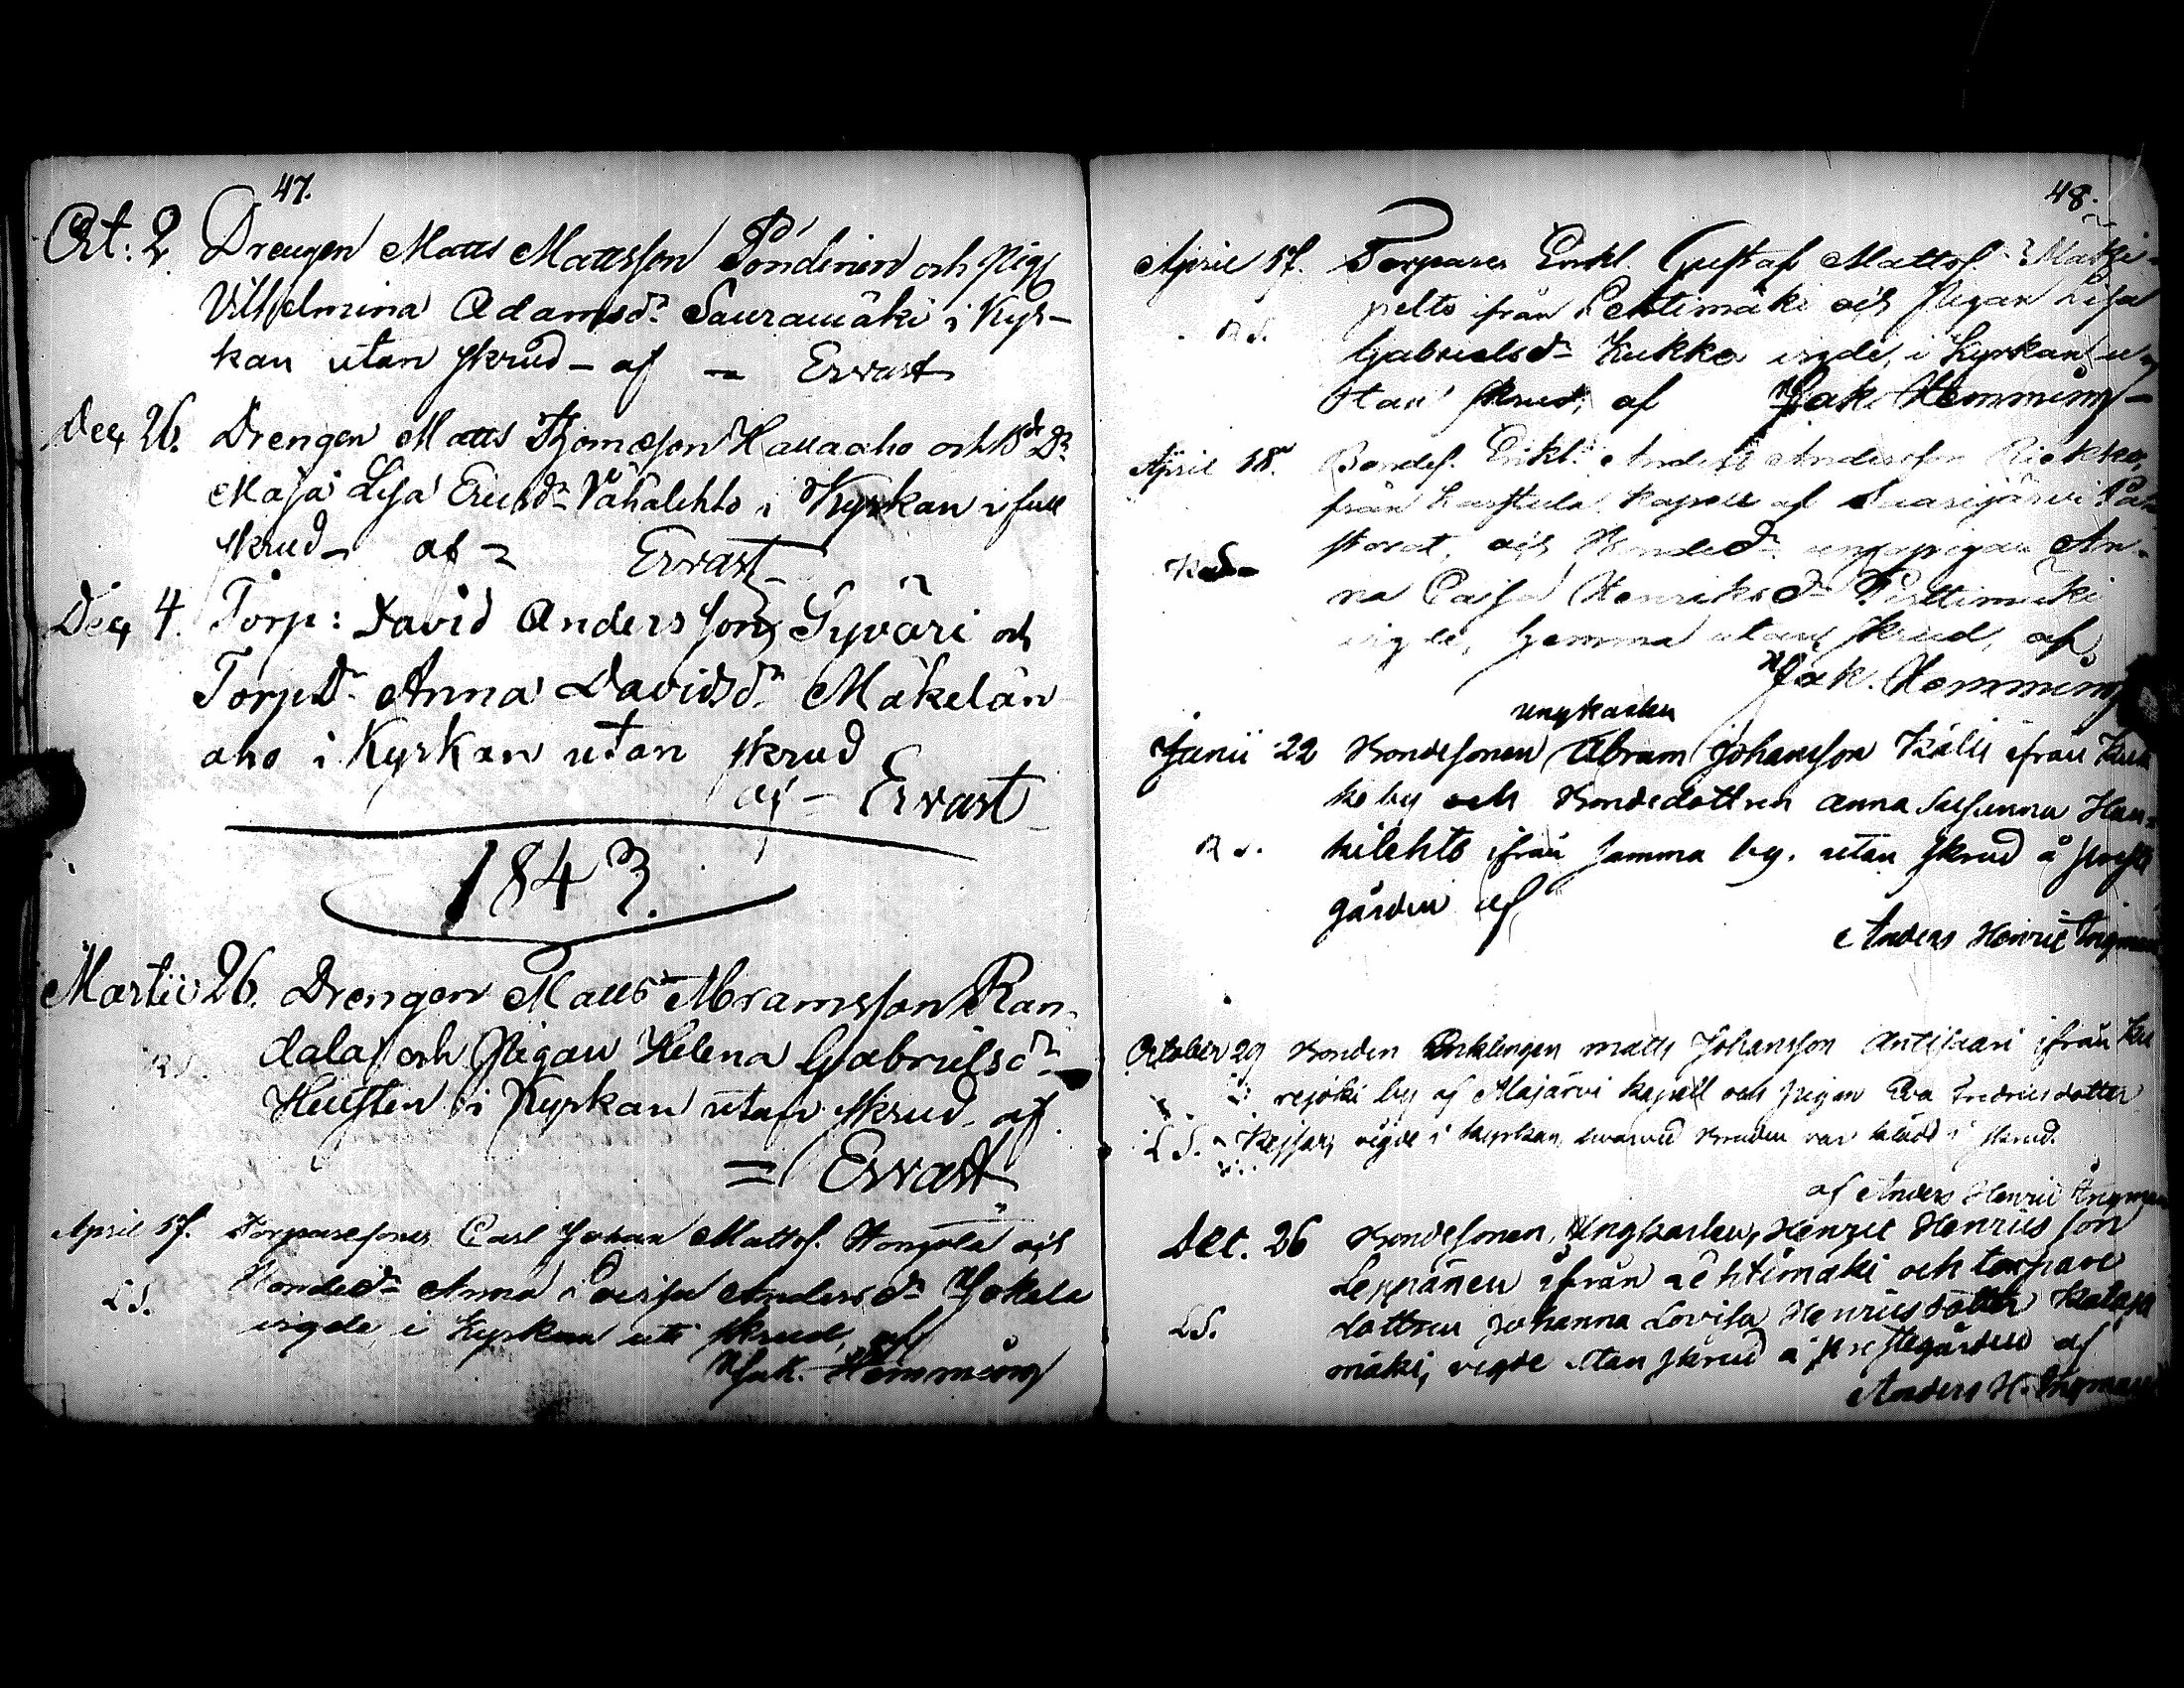 47.
Oct: 2 Drengen Matts Mattsson Pöndinen och Pig
Vilhelmina Adamsdr Sauramäki i Kyr-
kan utan skrud - af - Ervast
Dec 26. Drengen Matts Thomasson Hallaaho och Bde Dr
Maja Lisa Ericsdr Vähälehto i Kyrkan i full
skrud - af - Ervast
Dec 4. Torp: David Andersson Syväri och
TorpDr Anna Davidsdr Mäkelän
aho i Kyrkan utan skrud
af - Ervast
1843.
Martii 26. Drengen Matts Abramsson Ran-
dala och Pigan Helena Gabrielsdr
i Kyrkan utan skrud af
= Ervast
April 17. Torparesonen Carl Johan Mattss. Hongola och
Bondedr Anna Lovisa Andersdr Jokela
L.S. vigde i Kyrkan uti skrud, af
Jak. Hemming
48.
April 17. Torparen Enkl. Gustaf Mattss. Mäki-
pelto ifrån Lehtimäki och Pigan Lisa
R.S. Gabrielsdr Kukko vigde i Kyrkan u-
tan skrud, af Jak. Hemming
April 18. Bondes. Enkl. Anders Andersson Riekko,
från Karstula Kapell af Saarijärvi Pa-
storat, och Bondedr ungapigan An-
na Caisa Henriksdr Perttimäki
vigde, hemma utan skrud, af
Jak. Hemming
ungkarlen
Junii 22 Bondesonen Abram Johansson Kälis ifrån Kuk
ko by och Bondedottren Anna Susanna Hau-
R.S. kilehto ifrån samma by. utan skrud å prest
gården af
Anders Henric Ingman
October 29 Bonden Enklingen Matts Johansson Antisaari ifrån Ku
rejoki by af Alajärvi kapell och pigan Eva Fredricsdotter
L.S. Keisari, vigde i kyrkan, hvarvid Bruden var klädd i skrud.
af Anders Henric Ingman
Dec. 26 Bondesonen, Ungkarlen, Henric Henricsson
Leppänen ifrån Lehtimäki och torpare
L.S. dottren Johanna Lovisa Henricsdotter Kataja
mäki, vigde utan skrud å prestegården af
Anders H. Ingman